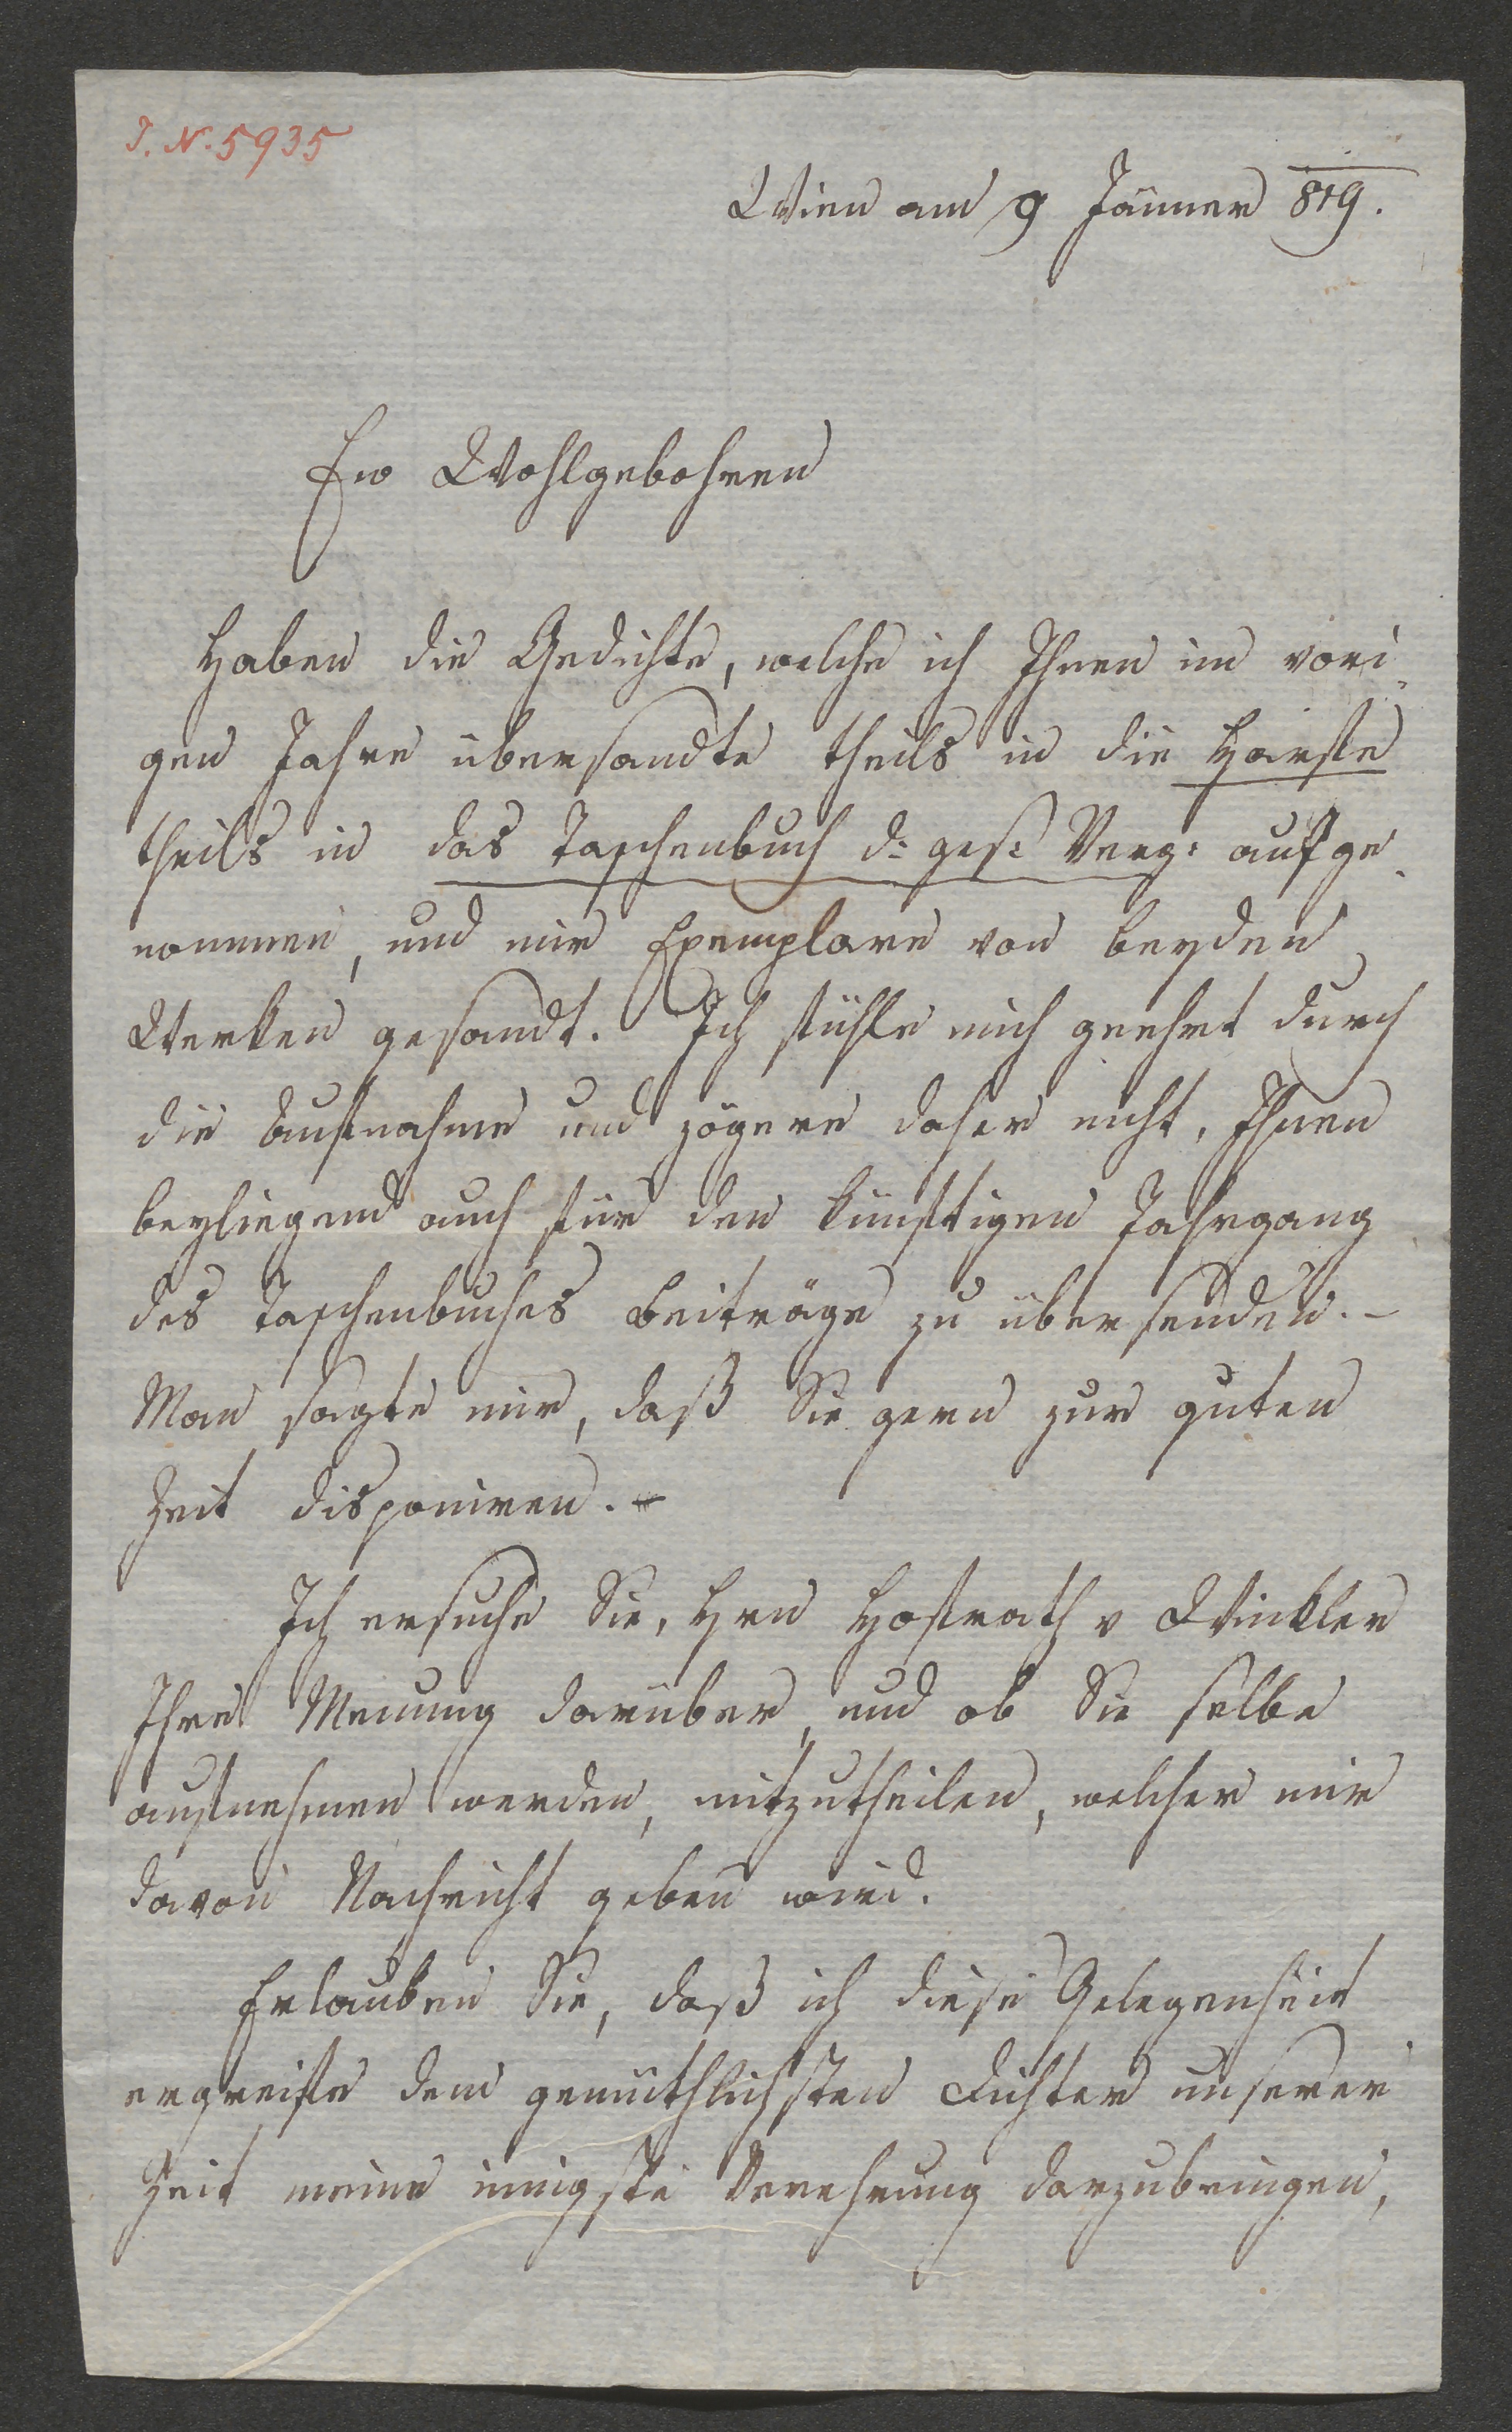 J. N. 5935
Wien am 9 Jänner 819.
Ew Wohlgebohren
Haben die Gedichte, welche ich Ihnen im vori-
gen Jahre übersandte theils in die Harfe
theils in das Taschenbuch d: ges: Verg: aufge-
nommen, und mir Exemplare von beyden
Werken gesandt. Ich fühle mich geehrt durch
die Aufnahme und zögere daher nicht, Ihnen
beyliegend auch für den künftigen Jahrgang
des Taschenbuches Beiträge zu übersenden. –
Man sagte mir, daß Sie gern zur guten
Zeit disponiren. –
Ich ersuche Sie, Hrn Hofrath v Winkler
Ihre Meinung darüber, und ob Sie selbe
aufnehmen werden, mitzutheilen, welcher mir
davon Nachricht geben wird.
Erlauben Sie, daß ich diese Gelegenheit
ergreife dem gemüthlichsten Dichter unserer
Zeit meine innigste Verehrung darzubringen,